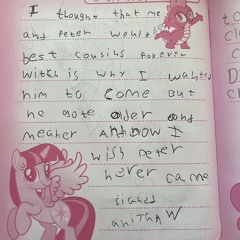 I thought that me
and Peter would
best cousins forever
witch is why I wanted
him to come but
he gote older and
meaner And now I
wish peter
never came
signed